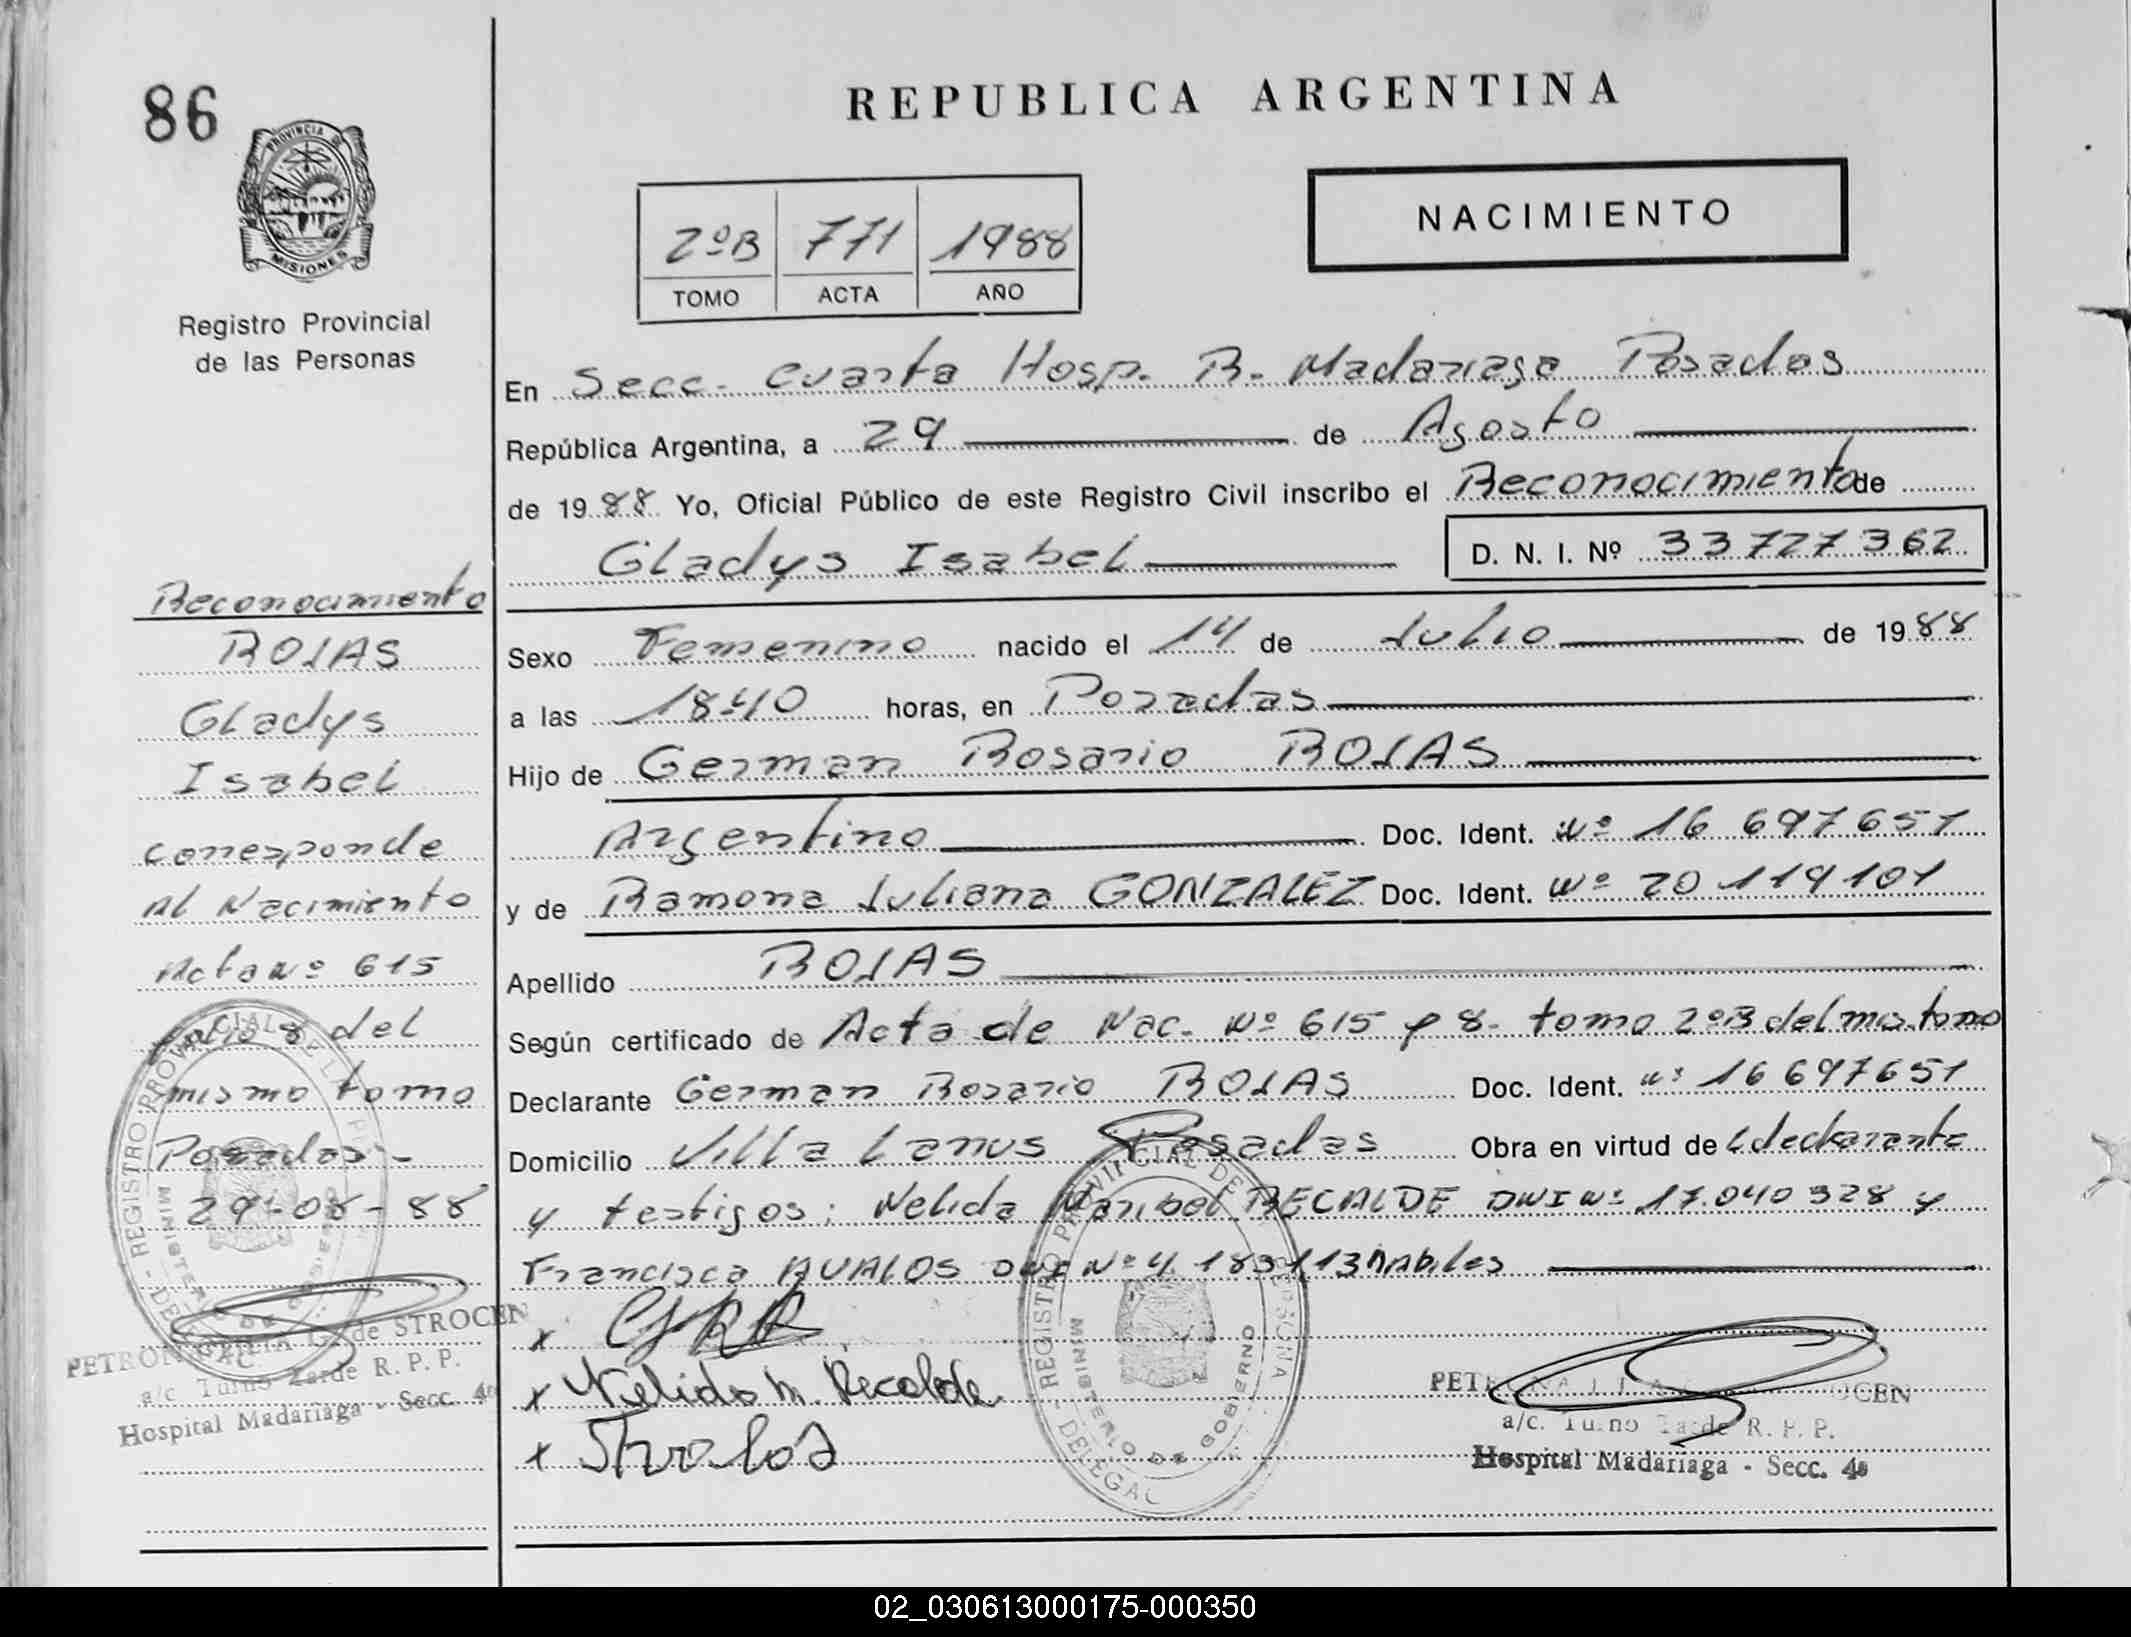 86
REPUBLICA ARGENTINA
PROVINCIA DE
MISIONES
Registro Provincial
de las Personas
2ºB 771 1988
TOMO ACTA AÑO
NACIMIENTO
En Secc. Cuarta Hosp. R. Madariaga Posadas
República Argentina, a 29 de Agosto
de 1988 Yo, Oficial Público de este Registro Civil inscribo el Reconocimiento de
Gladys Isabel D. N. I. Nº 33 727 362
Sexo Femenino nacido el 14 de Julio de 1988
a las 18 40 horas, en Posadas
Hijo de German Rosario ROJAS
Argentino Doc. Ident. Nº 16 697651
y de Ramona Juliana GONZALEZ Doc. Ident. Nº 20 119101
Apellido ROJAS
Según certificado de Acta de Nac. Nº 615 fº 8. tomo 2ºB del mis.tomo
Declarante German Rosario ROJAS Doc. Ident. nº 16 697651
Domicilio Villa Lanus Posadas Obra en virtud de l declarante
y testigos: Nelida Maribel RECALDE DNI Nº 17.040 328 y
Francisca AVALOS DNI Nº 4 189 113 hábiles
x GRR
x Nelida M. Recalde
x
REGISTRO PROVINCIAL DE
MINISTERIO DE GOBIERNO
DELEGAC
a/c. Turno Tarde R. P. P.
Hospital Madariaga - Secc. 4a
Reconocimiento
ROJAS
Gladys
Isabel
corresponde
Al Nacimiento
Acta Nº 615
folio 8 del
mismo tomo
Posadas-
29-08-88
REGISTRO PROVINCIAL DE
de STROCEN
a/c Turno Tarde R. P. P.
Hospital Madariaga - Secc. 4a
02_030613000175-000350